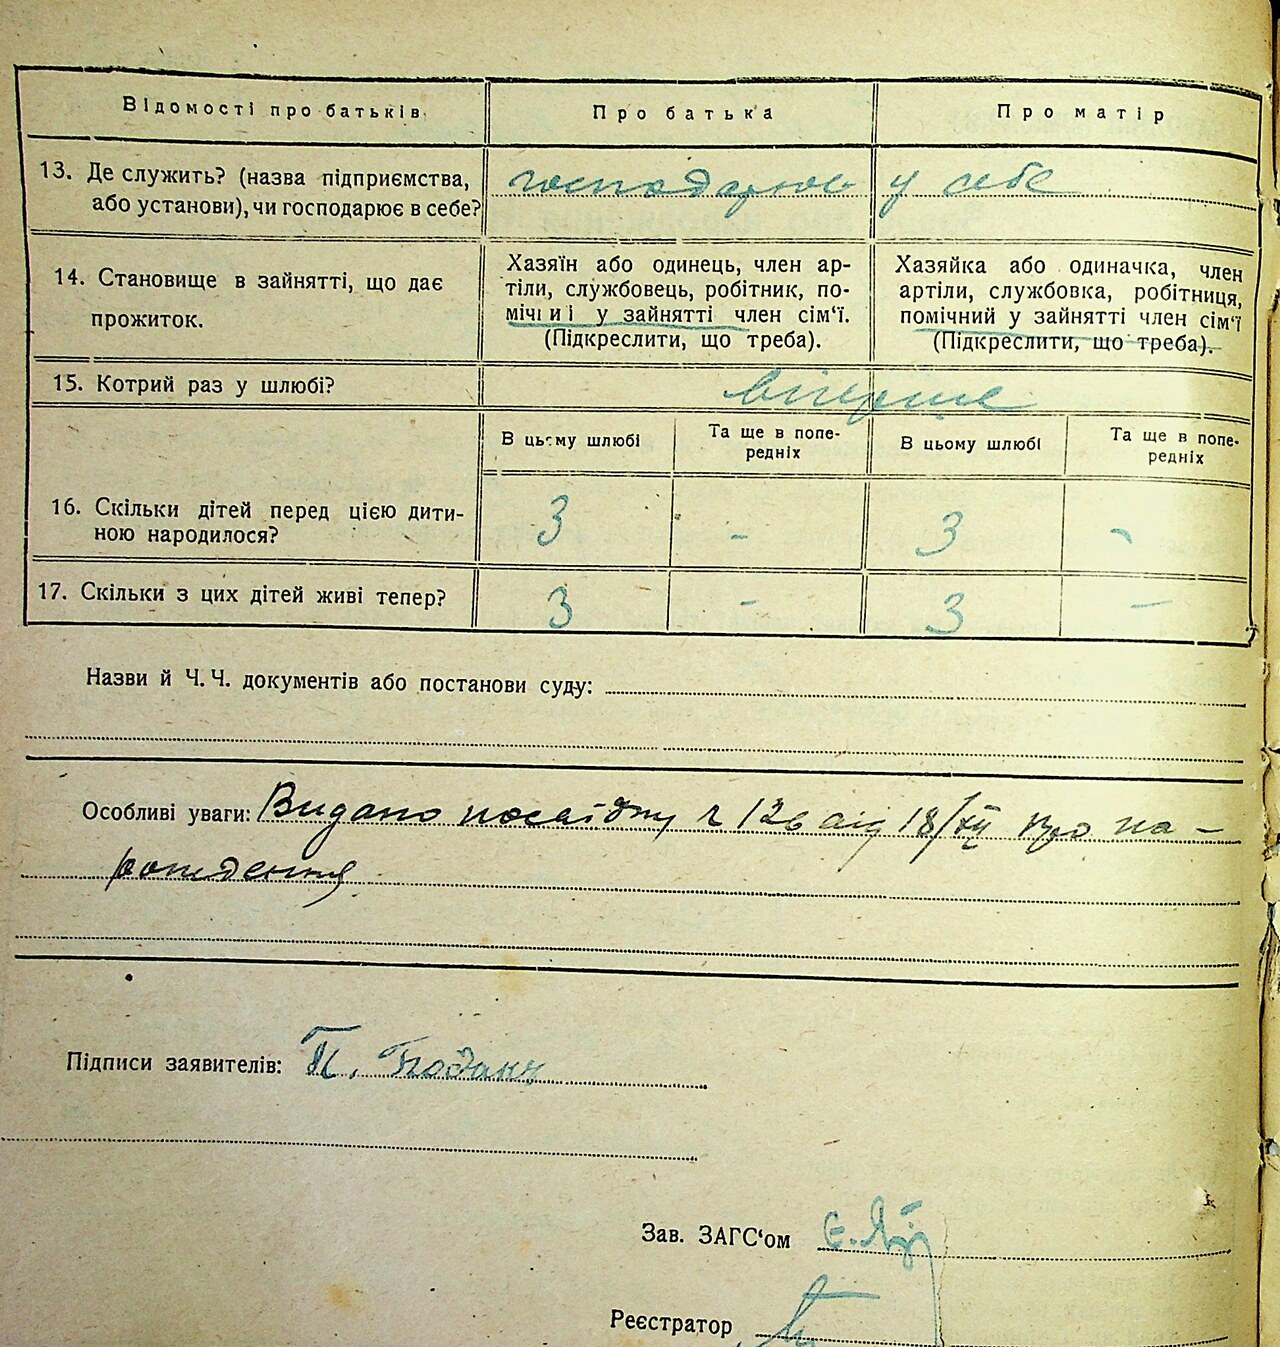 Відомості про батьків. Про батька Про матір
13. Де служить? (назва підприємства, господарює у себе
або установи), чи господарює в себе?
14. Становище в зайнятті, що дає
прожиток.
Хазяїн або одинець, член ар-
тіли, службовець, робітник, по-
мічний у зайнятті член сім‘ї.
(Підкреслити, що треба).
Хазяйка або одиначка, член
артіли, службовка, робітниця,
помічний у зайнятті член сім‘ї
(Підкреслити, що треба).
15. Котрий раз у шлюбі? вперше
В цьому шлюбі
Та ще в попе-
редніх
В цьому шлюбі
Та ще в попе-
редніх
16. Скільки дітей перед цією дити-
ною народилося?
3 - 3 -
17. Скільки з цих дітей живі тепер? 3 - 3 -
Назви й Ч. Ч. документів або постанови суду:
Особливі уваги: Видано посвідку 126 від 18/XII про на-
родження
Підписи заявителів: П.
Зав. ЗАГС‘ом Є.
Реєстратор